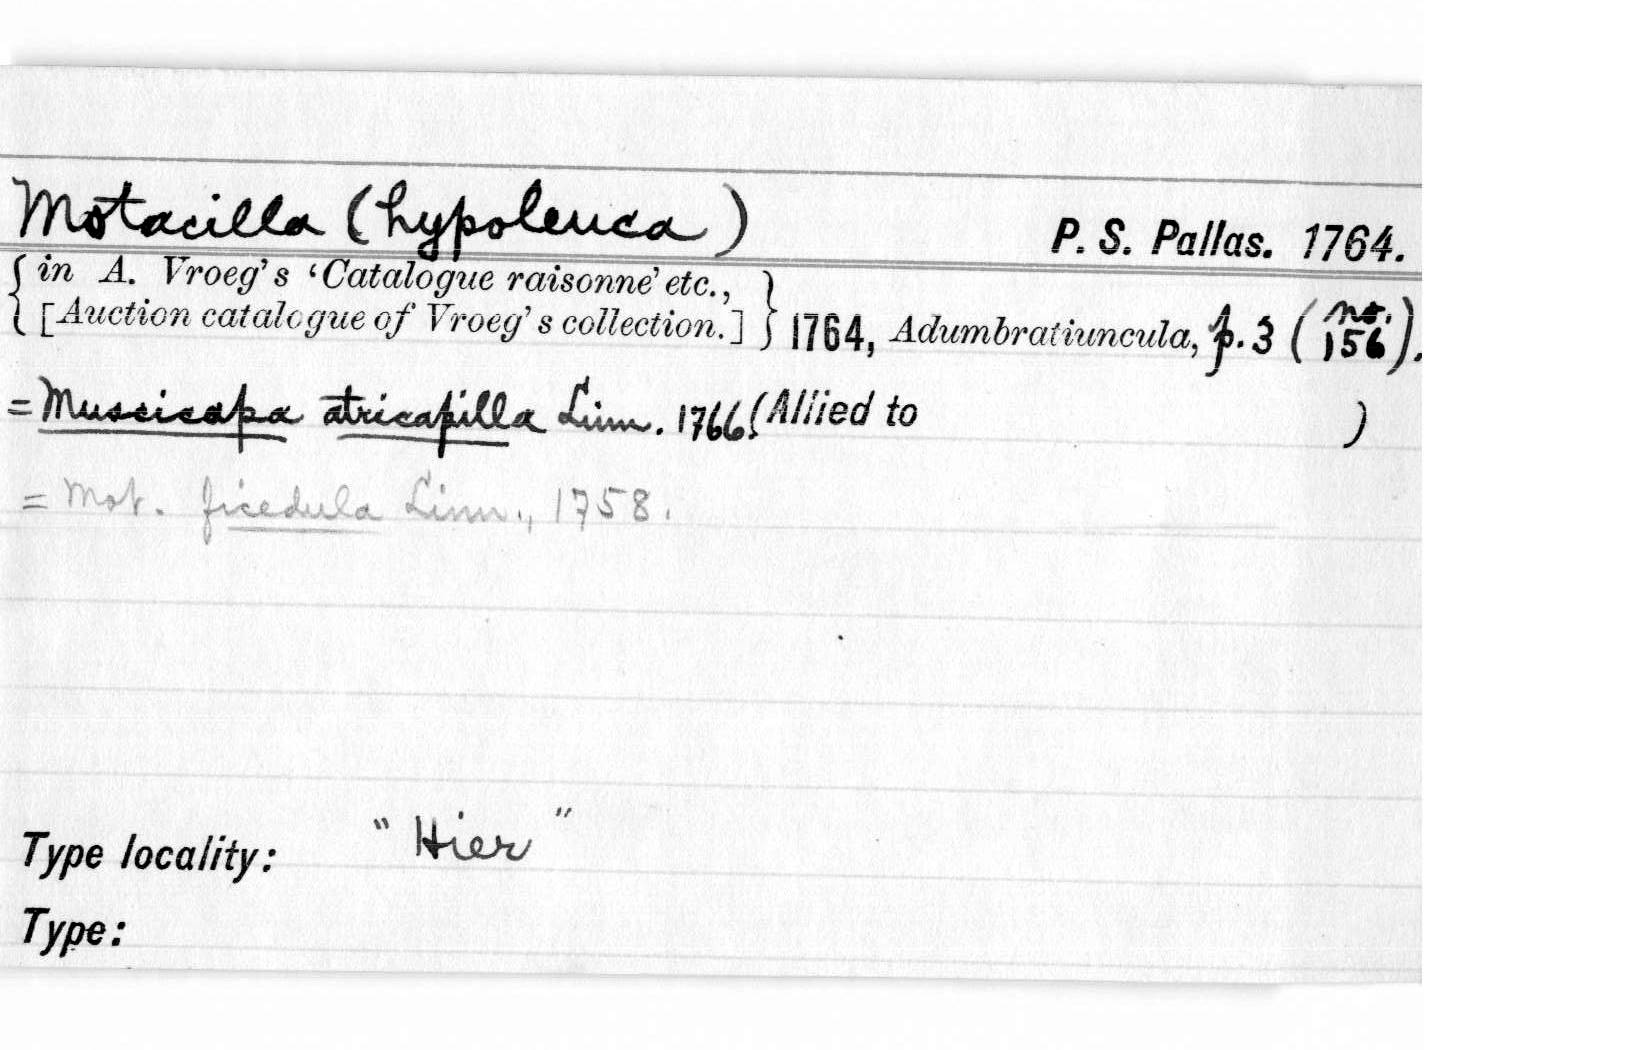 Motacilla (hypoleuca) P. S. Pallas. 1764.
{ in A. Vroeg's ‘Catalogue raisonne’ etc., }
{ [Auction catalogue of Vroeg's collection.] } 1764, Adumbratiuncula, p. 3 (no. 156).
= Muscicapa atricapilla Linn. 1766 (Allied to )
= Mot. ficedula Linn., 1758.
Type locality: "Hier"
Type: